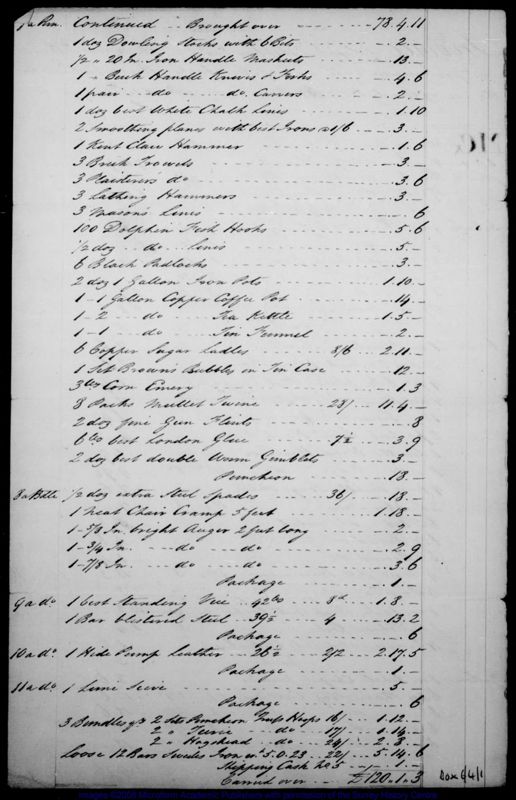 7 a Pun. Continued Brought over 78.4.11
1 doz Dowling Stocks with 6 Bits 2.-
1/2 " 20 In. Iron Handle Maskuts 13.-
1 - Buck Handle Knives & Forks 4.6
1 pair do do Carvers 2.-
1 doz best White Chalk Lines 1.10
2 Smoothing planes with best Irons a 1/6 3.-
1 Kent Claw Hammer 1.6
3 Brick Trowels 3.-
3 Plaisterers do 3.6
3 Lathing Hammers 3.-
3 Masons Lines 6
100 Dolphin Fish Hooks 5.6
1/2 doz do Lines 5.-
6 Black Padlocks 3.-
2 doz 1 Gallon Iron Pots 1.10.-
1 - 1 Gallon Copper Coffee Pot 14.-
1 - 2 do Tea Kettle 1.5.-
1 - 1 do Tin Funnel 2.-
6 Copper Sugar Ladles 8/6 2.11.-
1 Set Brown's Bubbles in Tin Case 12.-
3 lbs Corn Emery 1.3
8 Packs Mullet Twine 28/ 11.4.-
2 doz fine Gun Flints 8
6 lbs best London Glue 7 1/2 3.9
2 doz best double Worm Gimblets 3.-
Puncheon 18.-
8 a Bdle 1/2 doz extra Steel Spades 36/ 18.-
1 neat Chair Cramp 5 feet 1.18.-
1 - 5/8 In. bright Auger 2 feet long 2.-
1 - 3/4 In. do do 2.9
1 - 7/8 In. do do 3.6
Package 1.-
9 a do 1 best Standing Vice 42 lbs 8d 1.8.-
1 Bar blistered Steel 39 1/2 4 13.2
Package 6
10 a do 1 Hide Pump Leather 26 1/2 2/2 2.17.5
Package 1.-
11 a do 1 Lime Sieve 5.-
Package 6
3 Bundles 2 Sets Puncheon Truss Hoops 16/ 1.12.-
2 " Tierce do 17/ 1.14.-
2 " Hogshead do 24/ 2.8.-
Loose 12 Bars Swedes Iron wt. 5.0.23 22/ 5.14.6
Shipping Cask No 5 1.-
Carried over £120.1.3
Box 6/4/1
© Microform Academic Publishers with permission of the Surrey History Centre